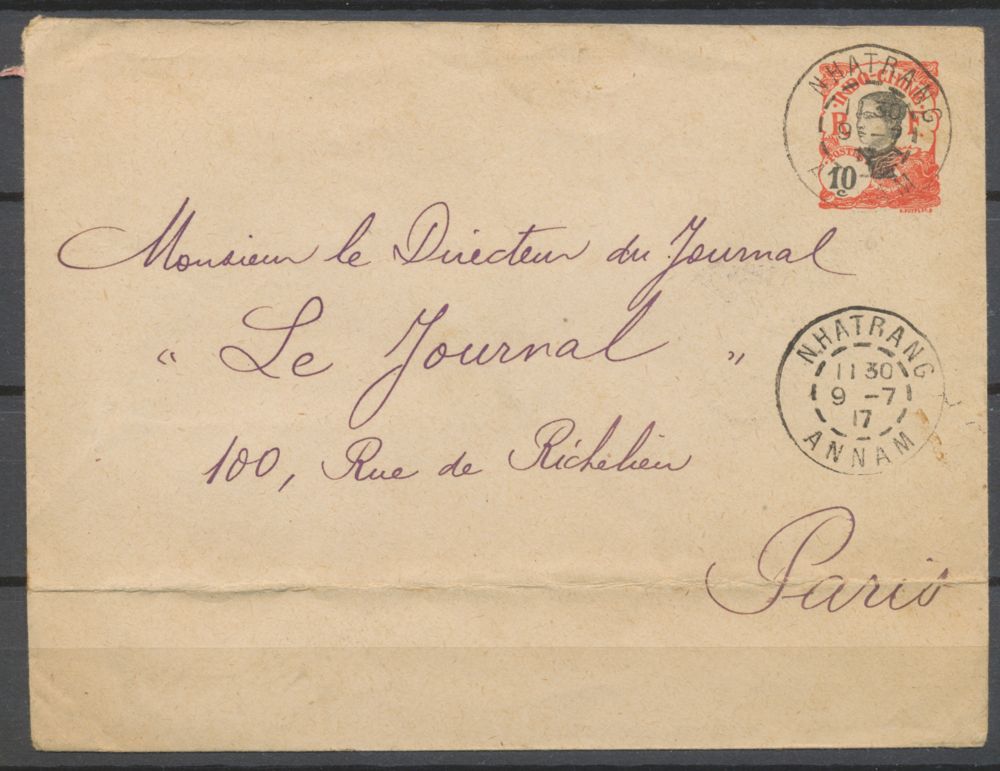 NHATRANG
11 30
9 -7
INDO-CHINE
R F
POSTES
10
c
Monsieur le Directeur du Journal
" Le Journal "
100, Rue de Richelieu
Paris
NHATRANG
11 30
9 -7
17
ANNAM